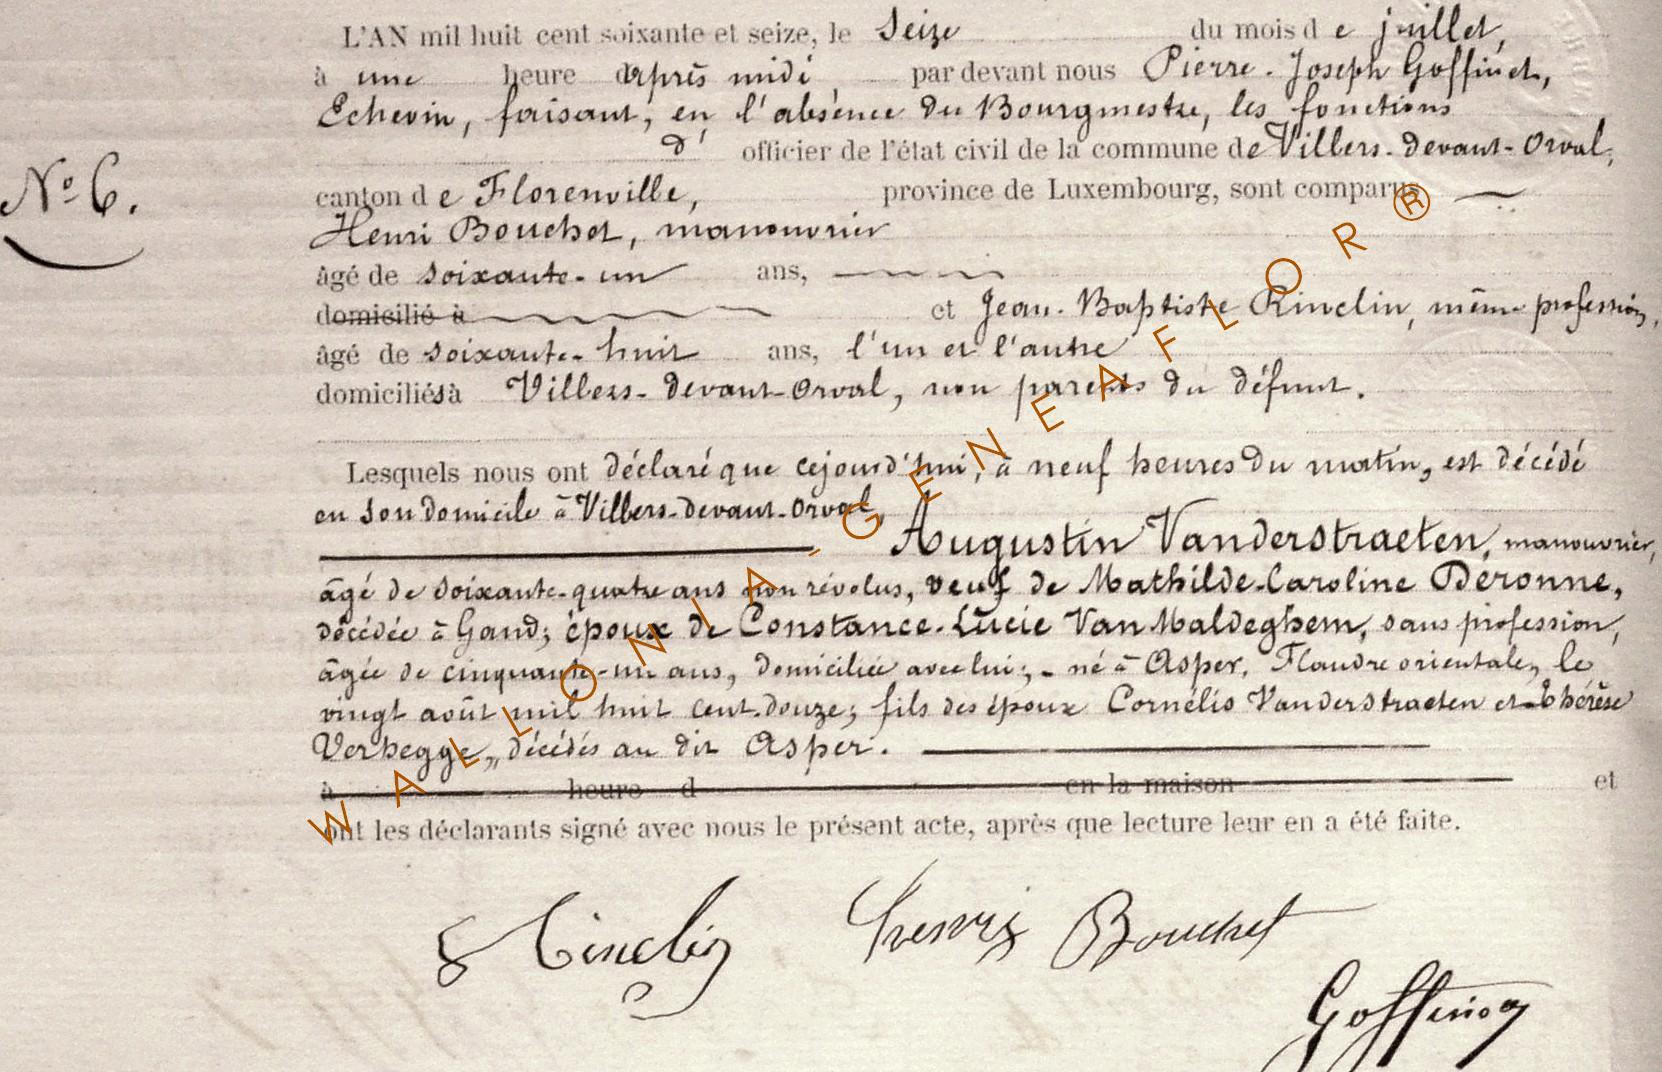 L'AN mil huit cent soixante et seize, le Seize du mois d e juillet,
à une heure d'après midi, par devant nous Pierre-Joseph Goffinet,
Echevin, faisant, en l'absence du Bourgmestre, les fonctions
d' officier de l'état civil de la commune de Villers-devant-Orval,
N° 6.
canton d e Florenville, province de Luxembourg, sont comparus
Henri Bouchet, manouvrier
âgé de soixante-un ans,
domicilié à et Jean-Baptiste Rinclin, même profession,
âgé de soixante-huit ans, l'un et l'autre
domiciliés à Villers-devant-Orval, non parents du défunt.
Lesquels nous ont déclaré que cejourd'hui, à neuf heures du matin, est décédé
en son domicile à Villers-devant-Orval,
Augustin Vanderstraeten, manouvrier,
âgé de soixante-quatre ans non révolus, veuf de Mathilde-Caroline Deronne,
décédée à Gand; époux de Constance-Lucie Van Maldeghem, sans profession,
âgée de cinquante-un ans, domiciliée avec lui; - né à Asper, Flandre orientale, le
vingt août mil huit cent-douze; fils des époux Cornélis Vanderstraeten et Thérèse
Verhegge, décédés au dit Asper.
à heure d en la maison et
ont les déclarants signé avec nous le présent acte, après que lecture leur en a été faite.
Rinclin Henri Bouchet
Goffinet
WALLONIA-GENEAFLOR®